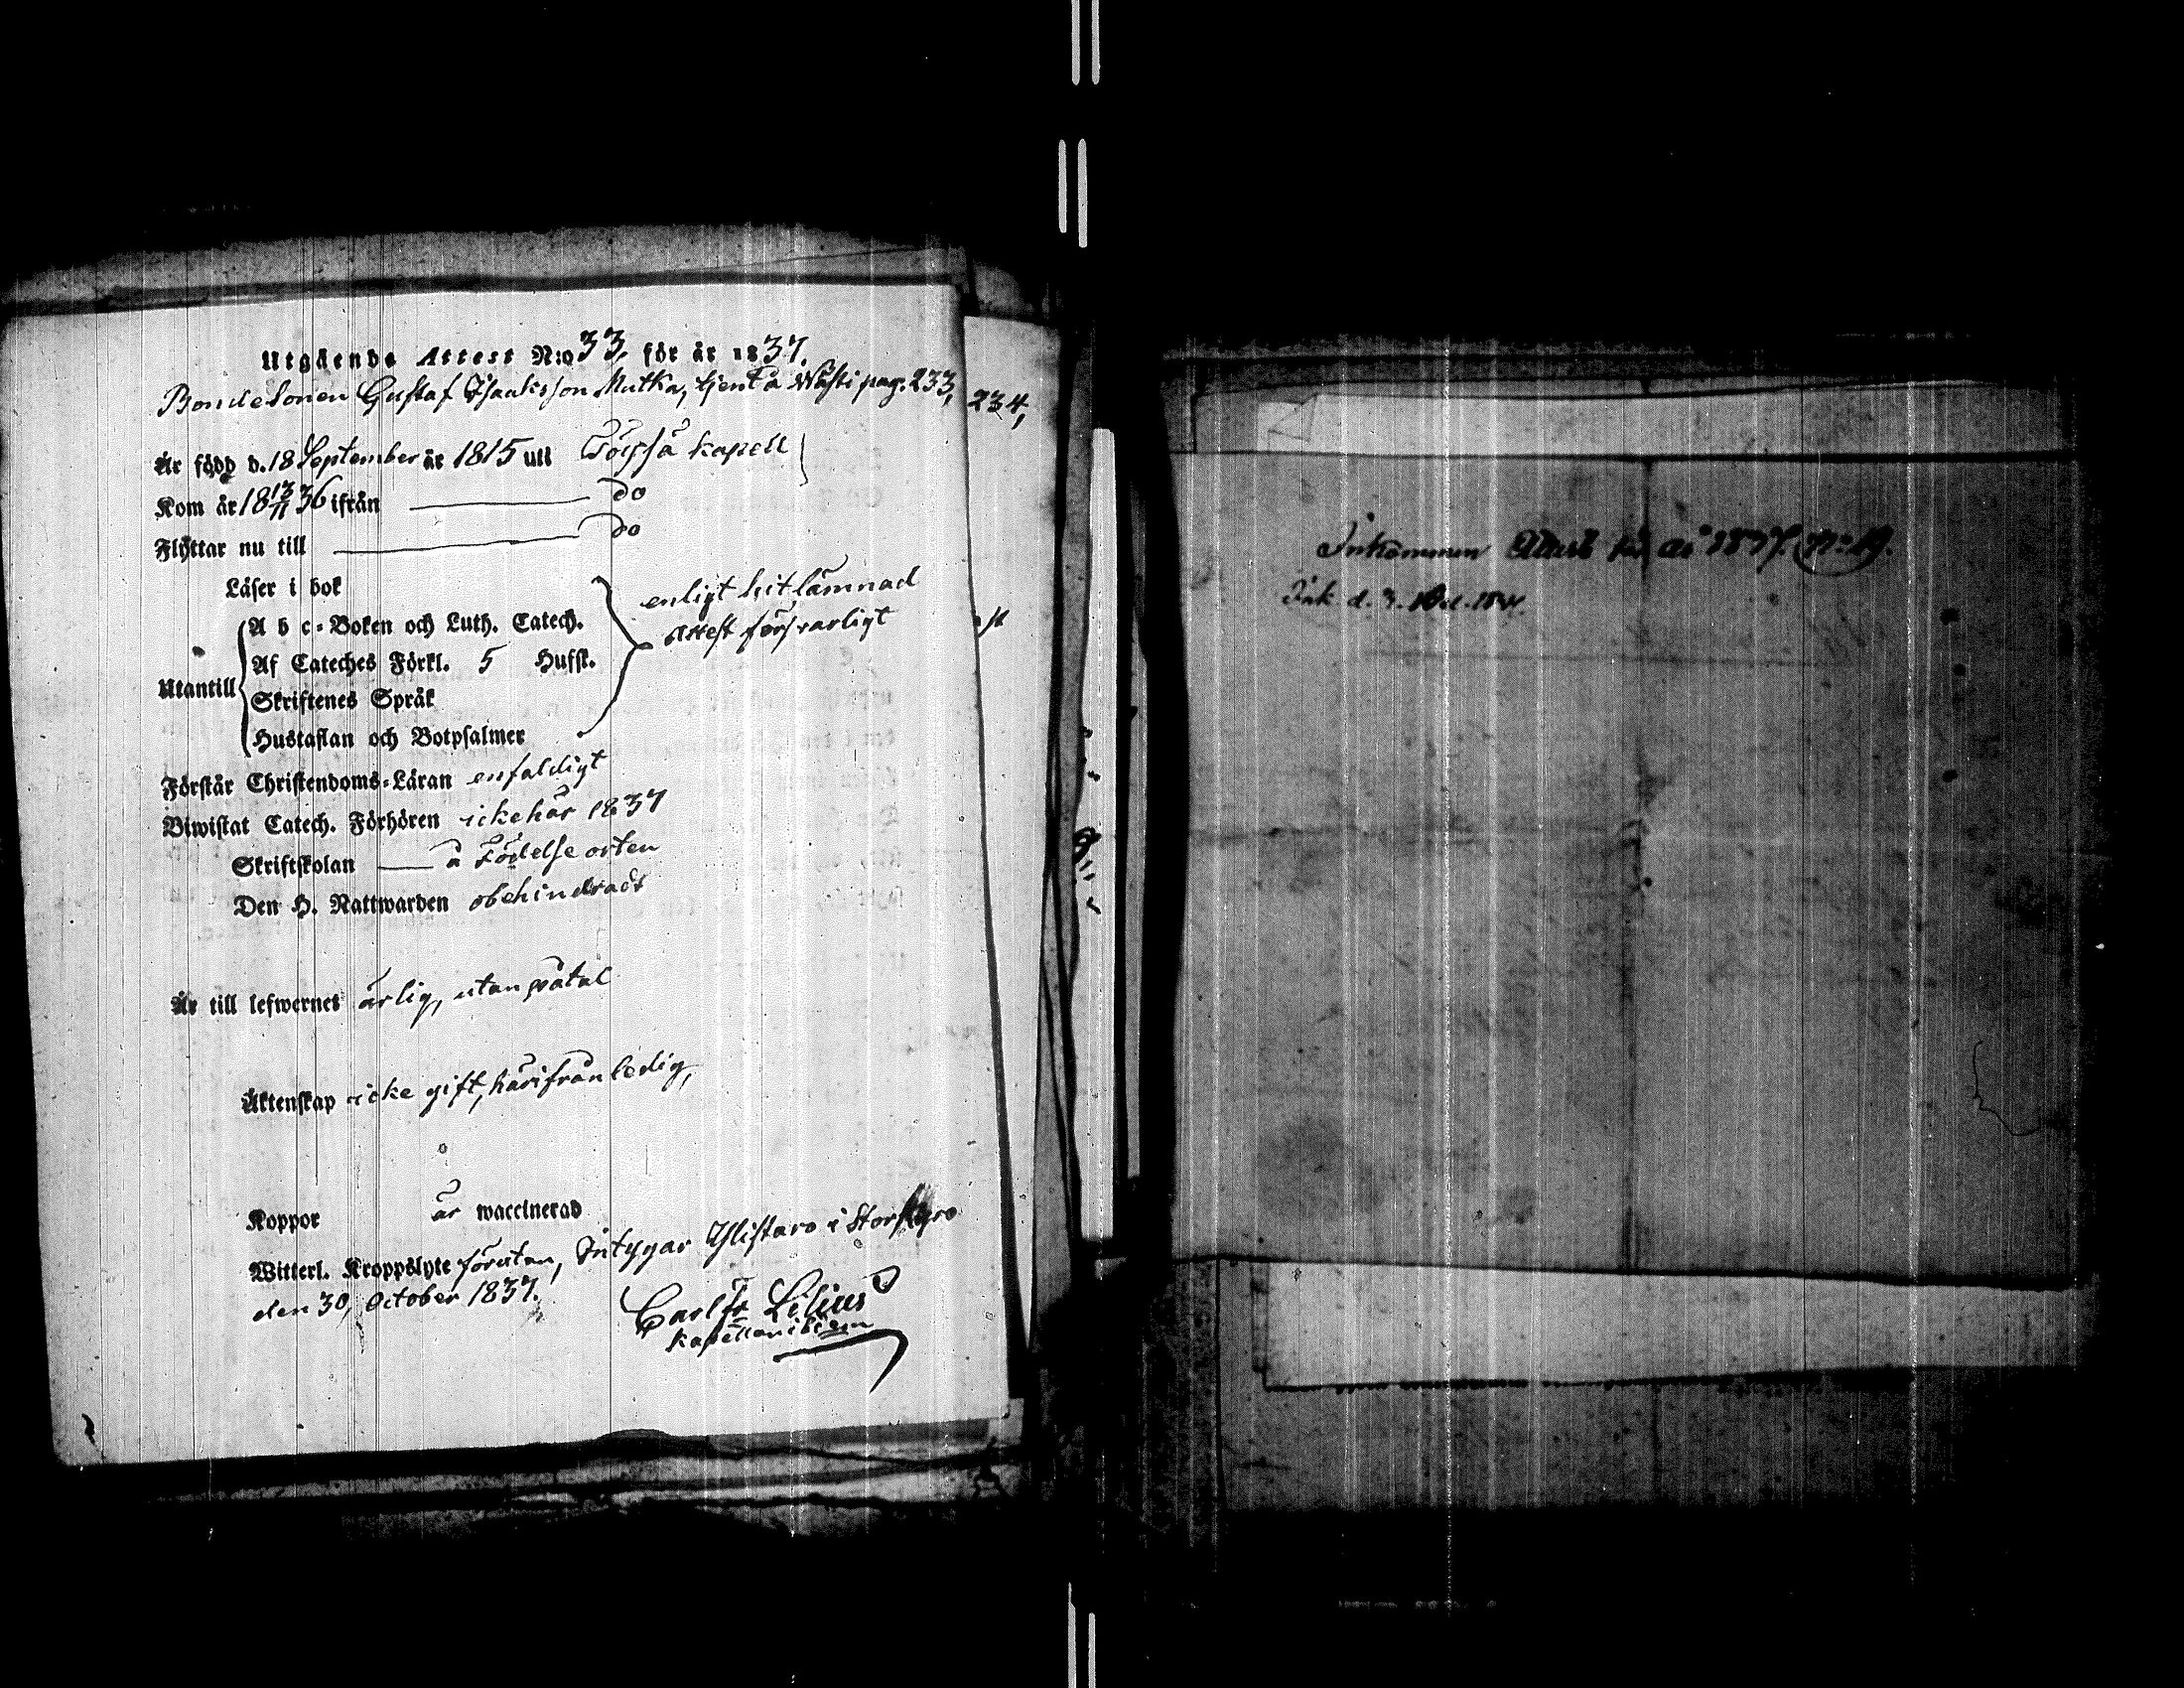 Utgående Attest N:o 33, för år 1837.
Bondesonen Gustaf Isaaksson Mutka, tjent å Wästi pag. 233,
234,
Är född d. 18 September år 1815 uti Töysä kapell
Kom år 18 13/11 36 ifrån do
Flyttar nu till do
Läser i bok
Utantill
A b c-Boken och Luth. Catech.
Af Cateches Förkl. 5 Hufst.
Skriftenes Språk
Hustaflan och Botpsalmer
enligt hitlämnad
attest försvarligt
Förstår Christendoms-Läran enfaldigt
Biwistat Catech. Förhören icke här 1837
Skriftskolan å Födelse orten
Den H. Nattwarden obehindradt
Är till lefwernet ärlig, utan påtal
Äktenskap icke gift, härifrån ledig,
Koppor är waccinerad
Witterl. Kroppslyte förutan, Intygar Ylistaro i Storkyro
den 30 October 1837.
Carl Fr Lilius
kapellan ibidem
Inkommen Attest för år 1837. N:o 19.
Ink. d. 3.